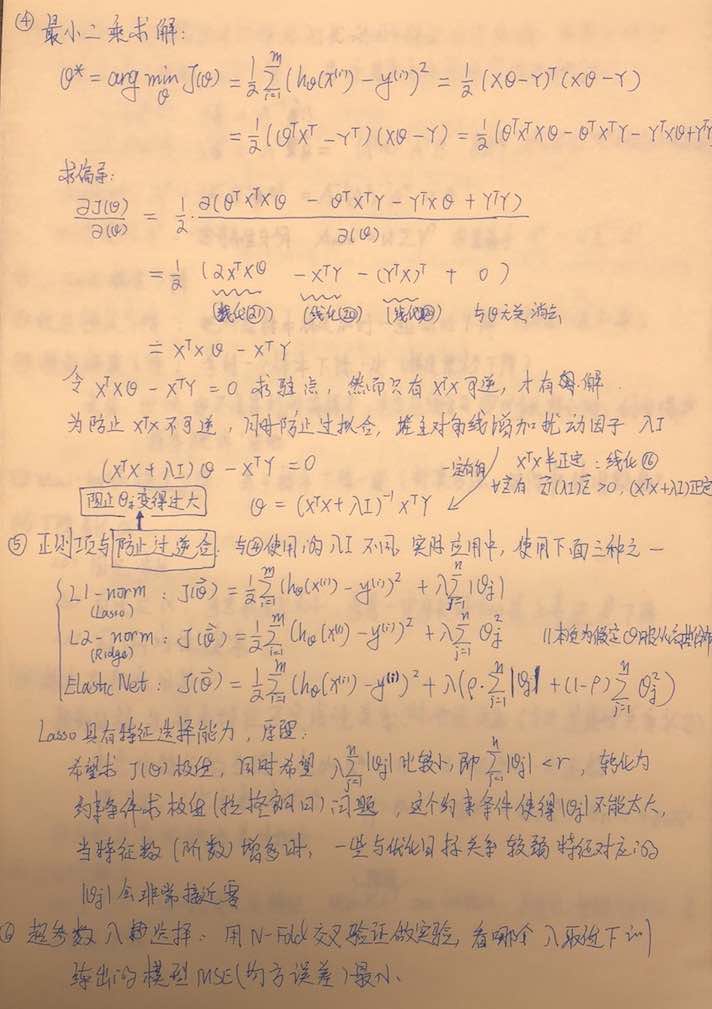 ④ 最小二乘求解:
θ* = arg min_θ J(θ) = 1/2 Σ_{i=1}^{m} (h_θ(x^(i)) − y^(i))² = 1/2 (Xθ−Y)^T (Xθ−Y)
= 1/2 (θ^T X^T − Y^T)(Xθ − Y) = 1/2 (θ^T X^T Xθ − θ^T X^T Y − Y^T Xθ + Y^T Y
求偏导:
∂J(θ)/∂(θ) = 1/2 · ∂(θ^T X^T Xθ − θ^T X^T Y − Y^T Xθ + Y^T Y)/∂(θ)
= 1/2 (2X^T Xθ − X^T Y − (Y^T X)^T + 0)
(线代㉑) (线代⑳) (线代) 与θ无关消去
= X^T X θ − X^T Y
令 X^T Xθ − X^T Y = 0 求驻点, 然而只有 X^T X 可逆, 才有解.
为防止 X^T X 不可逆, 同时防止过拟合, 主对角线增加扰动因子 λI
(X^T X + λI)θ − X^T Y = 0 一定有 X^T X 半正定: 线代⑯
阻止θ变得过大 θ = (X^T X + λI)^{-1} X^T Y (λI) > 0, (X^T X + λI) 正定
⑤ 正则项与防止过拟合: 与④使用的λI 不同, 实际应用中, 使用下面三种之一
L1-norm (Lasso) : J(θ⃗) = 1/2 Σ_{i=1}^{m} (h_θ(x^(i)) − y^(i))² + λ Σ_{j=1}^{n} |θj|
L2-norm (Ridge) : J(θ⃗) = 1/2 Σ_{i=1}^{m} (h_θ(x^(i)) − y^(i))² + λ Σ_{j=1}^{n} θj² //本质为假定θ服从
Elastic Net : J(θ⃗) = 1/2 Σ_{i=1}^{m} (h_θ(x^(i)) − y^(i))² + λ(ρ· Σ_{j=1}^{n} |θj| + (1−ρ) Σ_{j=1}^{n} θj²)
Lasso 具有特征选择能力, 原理:
希望求 J(θ) 极值, 同时希望 λ Σ_{j=1}^{n} |θj| 比较小, 即 Σ_{j=1}^{n} |θj| < r, 转化为
约束条件求极值(拉格朗日)问题, 这个约束条件使得|θj|不能太大,
当特征数(阶数)增多时, 一些与优化目标关系较弱特征对应的
|θj| 会非常接近零
⑥ 超参数 λ 选择: 用 N-Fold 交叉验证做实验, 看哪个 λ 取值下训
练出的模型 MSE(均方误差)最小.